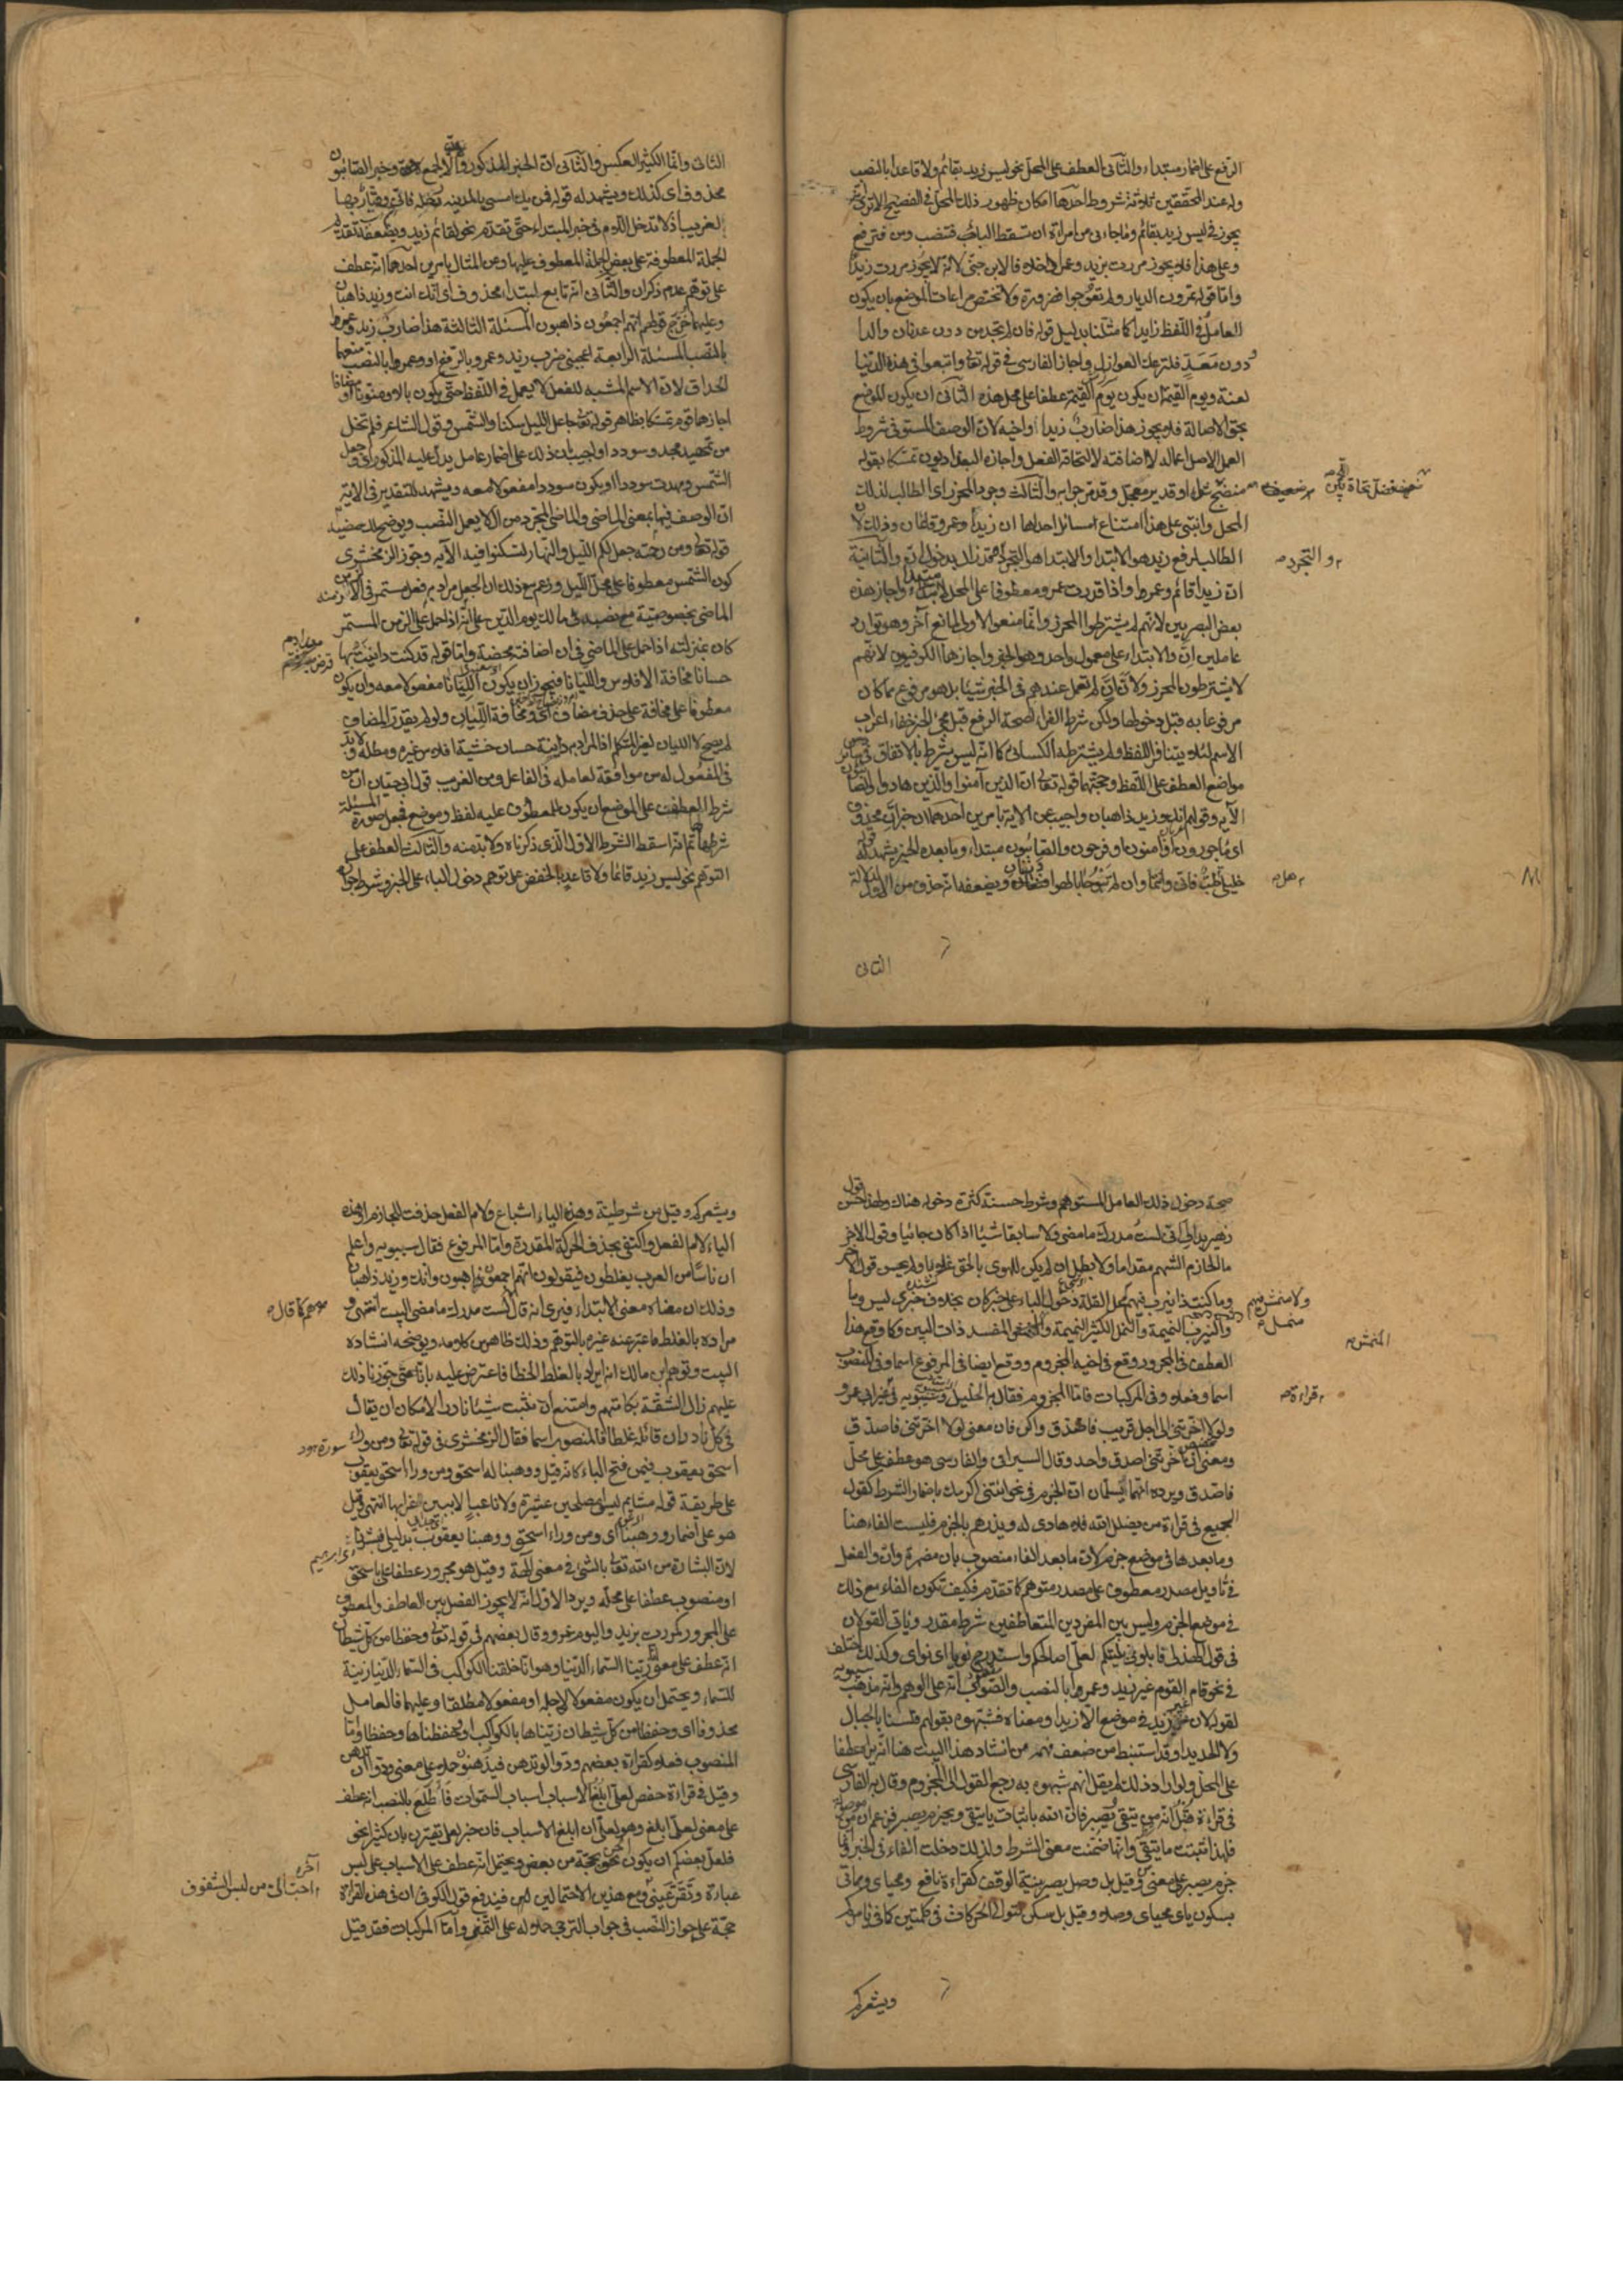 الرفع على اضمار مبتداء والثانى العطف على المحل نحو ليس زيد بقائم ولا قاعدا بالنصب
وله عند المحققين ثلاثة شروط احدها امكان ظهور ذلك المحل فى الفصيح الا ترى انه
يجوز فى ليس زيد بقائم وما جاءنى من امراة ان تسقط الباء فتنصب ومن فترفع
وعلى هذا فلا يجوز مررت بزيد وعمرا خلافا لابن جنى لانه لا يجوز مررت زيدا
واما قوله تمرون الديار ولم تعوجوا فضرورة ولا تختص مراعات الموضع بان يكون
العامل فى اللفظ زايدا كما مثلنا بدليل قوله فان لم تجد من دون عدنان والدا
ودون معد فلتزعك العواذل واجاز الفارسى فى قوله تعالى واتبعوا فى هذه الدنيا
لعنة ويوم القيمة ان يكون يوم القيمة عطفا على محل هذه الثانى ان يكون الموضع
بحق الاصالة فلا يجوز هذا ضارب زيدا واخيه لان الوصف المستوفى شروط
العمل الاصل اعماله لا اضافته لالتحاقه بالفعل واجازه البغداديون تمسكا بقوله
منضج صفيف شواء او قدير معجل وقد مر جوابه والثالث وجود المحرز اى الطالب لذلك
المحل وانبنى على هذا امتناع مسائل احداها ان زيدا وعمرو قائمان وذلك لان
الطالب لرفع زيد هو الابتداء والابتداء هو التجرد قد زال بدخول ان والثانية
والتجرد
ان زيدا قائم وعمرو اذا قدرت عمرو معطوفا على المحل لا مبتداء واجاز هذه
بعض البصريين لانهم لم يشترطوا المحرز وانما منعوا الاولى لمانع آخر وهو توارد
عاملين ان والابتداء على معمول واحد وهو الخبر واجازها الكوفيون لانهم
لا يشترطون المحرز ولان ان لم تعمل عندهم فى الخبر شيئا بل هو مرفوع بما كان
مرفوعا به قبل دخولها ولكن شرط الفراء لصحة الرفع قبل مجئ الخبر خفاء اعراب
الاسم لئلا يتنافر اللفظ ولم يشترطه الكسائى كما انه ليس بشرط بالاتفاق فى سائر
مواضع العطف على اللفظ وحجتهما قوله تعالى ان الذين آمنوا والذين هادوا والصابئون
الآية وقولهم انك وزيد ذاهبان واجيب عن الاية بامرين احدهما ان خبر ان محذوف
اى ماجورون او آمنون او فرحون والصابئون مبتداء وما بعده الخبر يشهد له قوله
خليلى هل طب فانى وانتما وان لم تبوحا بالهوى دنفان ويضعفه انه حذف من الاول لدلالة
هل
الثانى
الثانى وانما الكثير العكس والثانى ان الخبر المذكور لان وخبر الصابئون
محذوف اى كذلك ويشهد له قوله فمن يك امسى بالمدينه رحله فانى وقيار بها
لغريب اذ لا تدخل اللام فى خبر المبتداء حتى تقدم نحو لقائم زيد ويضعفه تقديم
الجملة المعطوفة على بعض الجملة المعطوف عليها وعن المثال بامرين احدهما انه عطف
على توهم عدم ذكر ان والثانى انه تابع لمبتداء محذوف اى انك انت وزيد ذاهبان
وعليهما خرج قولهم انهم اجمعون ذاهبون المسئلة الثالثة هذا ضارب زيد وعمرا
بالنصب المسئلة الرابعة اعجبنى ضرب زيد وعمرو بالرفع او وعمرا بالنصب منعهما
الحذاق لان الاسم المشبه للفعل لا يعمل فى اللفظ حتى يكون بال او منونا او مضافا
اجازهما قوم تمسكا بظاهر قوله تعالى جاعل الليل سكنا والشمس وقول الشاعر فلم تخل
من تمهيد مجد وسوددا واجيب بان ذلك على اضمار عامل يدل عليه المذكور اى وجعل
الشمس ومهدت سوددا او يكون سوددا مفعولا معه ويشهد للتقدير فى الاية
ان الوصف فيها بمعنى الماضى والماضى المجرد من ال لا يعمل النصب ويوضح لك مضيه
قوله تعالى ومن رحمته جعل لكم الليل والنهار لتسكنوا فيه الآية وجوز الزمخشرى
كون الشمس معطوفا على محل الليل وزعم مع ذلك ان الجعل مراد به فعل مستمر فى الازمنة
الماضى بخصوصيته مع نصه فى مالك يوم الدين على انه اذا حمل على الزمن المستمر
كان بمنزلته اذا حمل على الماضى فى ان اضافته محضة واما قوله قد كنت داينت بها
حسانا مخافة الافلاس والليانا فيجوز ان يكون الليانا مفعولا معه وان يكون
معطوفا على مخافة على حذف مضاف اى ومخافة الليان ولو لم يقدر المضاف
لم يصح لان الليان لغير المتكلم اذ المراد انه داينت حسان خشية افلاس غيره ومطله ولابد
فى المفعول له من موافقة لعامله فى الفاعل ومن الغريب قول ابى حيان ان من
شرط العطف على الموضع ان يكون للمعطوف عليه لفظ وموضع فجعل صورة المسئلة
شرطها ثم انه اسقط الشرط الاول الذى ذكرناه ولابد منه والثالث العطف على
التوهم نحو ليس زيد قائما ولا قاعد بالخفض على توهم دخول الباء على الخبر وشرط جوازه
صحة دخول ذلك العامل المتوهم وشرط حسنه كثرة دخوله هناك ولهذا حسن قول
زهير بدا لى انى لست مدرك ما مضى ولا سابق شيئا اذا كان جائيا وقول الآخر
ما الحازم الشهم مقداما ولا بطل ان لم يكن للهوى بالحق غلابا ولم يحسن قول الآخر
وما كنت ذا نيرب فيهم لقلة دخول الباء على خبر كان بخلاف خبرى ليس وما
ولا منمش فيهم منمل
والنيرب النميمة والنمل الكثير النميمة والمنمش المفسد ذات البين وكما وقع هذا
المنمش
العطف فى المجرور وقع فى اخيه المجزوم ووقع ايضا فى المرفوع اسما وفى المنصوب
اسما وفعلا وفى المركبات فاما المجزوم فقال به الخليل وسيبويه فى قراءة غير ابى عمرو
لولا اخرتنى الى اجل قريب فاصدق واكن فان معنى لولا اخرتنى فاصدق
ومعنى ان اخرتنى اصدق واحد وقال السيرافى والفارسى هو عطف على محل
فاصدق ويرده انهما يسلمان ان الجزم فى نحو ائتنى اكرمك باضمار الشرط كقول
الجميع فى قراءة من يضلل الله فلا هادى له ويذرهم بالجزم فليست الفاء هنا
وما بعدها فى موضع جزم لان ما بعد الفاء منصوب بان مضمرة وان والفعل
فى تاويل مصدر معطوف على مصدر متوهم كما تقدم فكيف تكون الفاء مع ذلك
فى موضع الجزم وليس بين المفردين المتعاطفين شرط مقدر وياتى القولان
فى قول الهذلى فابلونى بليتكم لعلى اصالحكم واستدرج نويا اى نواى وكذلك اختلف
فى نحو قام القوم غير زيد وعمرا بالنصب والصواب انه على التوهم وانه مذهب سيبويه
لقوله لان غير زيد فى موضع الا زيدا ومعناه فشبهوه بقولهم فلسنا بالجبال
ولا الحديدا وقد استنبط من ضعف فهمه من انشاد هذا البيت هنا انه يراه عطفا
على المحل ولو اراد ذلك لم يقل انهم شبهوه به رجع القول الى المجزوم وقال به الفارسى
فى قراءة قنبل انه من يتقى ويصبر فان الله باثبات ياء يتقى وجزم يصبر فزعم ان من موصولة
فلهذا ثبتت ياء يتقى وانها ضمنت معنى الشرط ولذلك دخلت الفاء فى الخبر وانما
جزم يصبر على معنى من وقيل بل وصل يصبر بنية الوقف كقراءة نافع ومحياى ومماتى
بسكون ياى محياى وصلا وقيل بل سكن لتوالى الحركات فى كلمتين كما فى يامركم
ويشعركم
ويشعركم وقيل من شرطية وهذه الياء اشباع ولام الفعل حذفت للجازم او هذه
الياء لام الفعل واكتفى بحذف الحركة المقدرة واما المرفوع فقال سيبويه واعلم
ان ناسا من العرب يغلطون فيقولون انهم اجمعون ذاهبون وانك وزيد ذاهبان
وذلك ان معناه معنى الابتداء فيرى انه قال لست مدرك ما مضى البيت انتهى و
هم كما قال
مراده بالغلط ما عبر عنه غيره بالتوهم وذلك ظاهر من كلامه ويوضحه انشاده
البيت وتوهم ابن مالك انه اراد بالغلط الخطا فاعترض عليه بانا متى جوزنا ذلك
عليهم زالت الثقة بكلامهم وامتنع ان نثبت شيئا نادرا لامكان ان يقال
فى كل نادر ان قائله غلط واما المنصوب اسما فقال الزمخشرى فى قوله تعالى ومن وراء
سورة هود
اسحق يعقوب فيمن فتح الباء كانه قيل ووهبنا له اسحق ومن وراء اسحق يعقوب
على طريقة قوله مشائيم ليسوا مصلحين عشيرة ولا ناعب الا ببين غرابها انتهى وقيل
هو على اضمار ووهبنا اى ومن وراء اسحق ووهبنا يعقوب بدليل فبشرناها
لان البشارة من الله تعالى بالشئ فى معنى الهبة وقيل هو مجرور عطفا على باسحق
او منصوب عطفا على محله ويرد الاول انه لا يجوز الفصل بين العاطف والمعطوف
على المجرور كمررت بزيد واليوم عمرو وقال بعضهم فى قوله تعالى وحفظا من كل شيطان
انه عطف على معنى انا زينا السماء الدنيا وهو انا خلقنا الكواكب فى السماء الدنيا زينة
للسماء ويحتمل ان يكون مفعولا لاجله او مفعولا مطلقا وعليهما فالعامل
محذوف اى وحفظا من كل شيطان زيناها بالكواكب او حفظناها حفظا واما
المنصوب فعلا كقراءة بعضهم ودوا لو تدهن فيدهنوا حملا على معنى ودوا ان تدهن
وقيل فى قراءة حفص لعلى ابلغ الاسباب اسباب السموات فاطلع بالنصب انه عطف
على معنى لعلى ابلغ وهو لعلى ان ابلغ الاسباب فان خبر لعل يقترن بان كثيرا نحو
فلعل بعضكم ان يكون الحن بحجته من بعض ويحتمل انه عطف على الاسباب على لبس
آخره احب الى من لبس الشفوف
عباءة وتقر عينى ومع هذين الاحتمالين فيندفع قول الكوفى ان فى هذه القراءة
حجة على جواز النصب فى جواب الترجى حملا له على التمنى واما المركبات فقد قيل